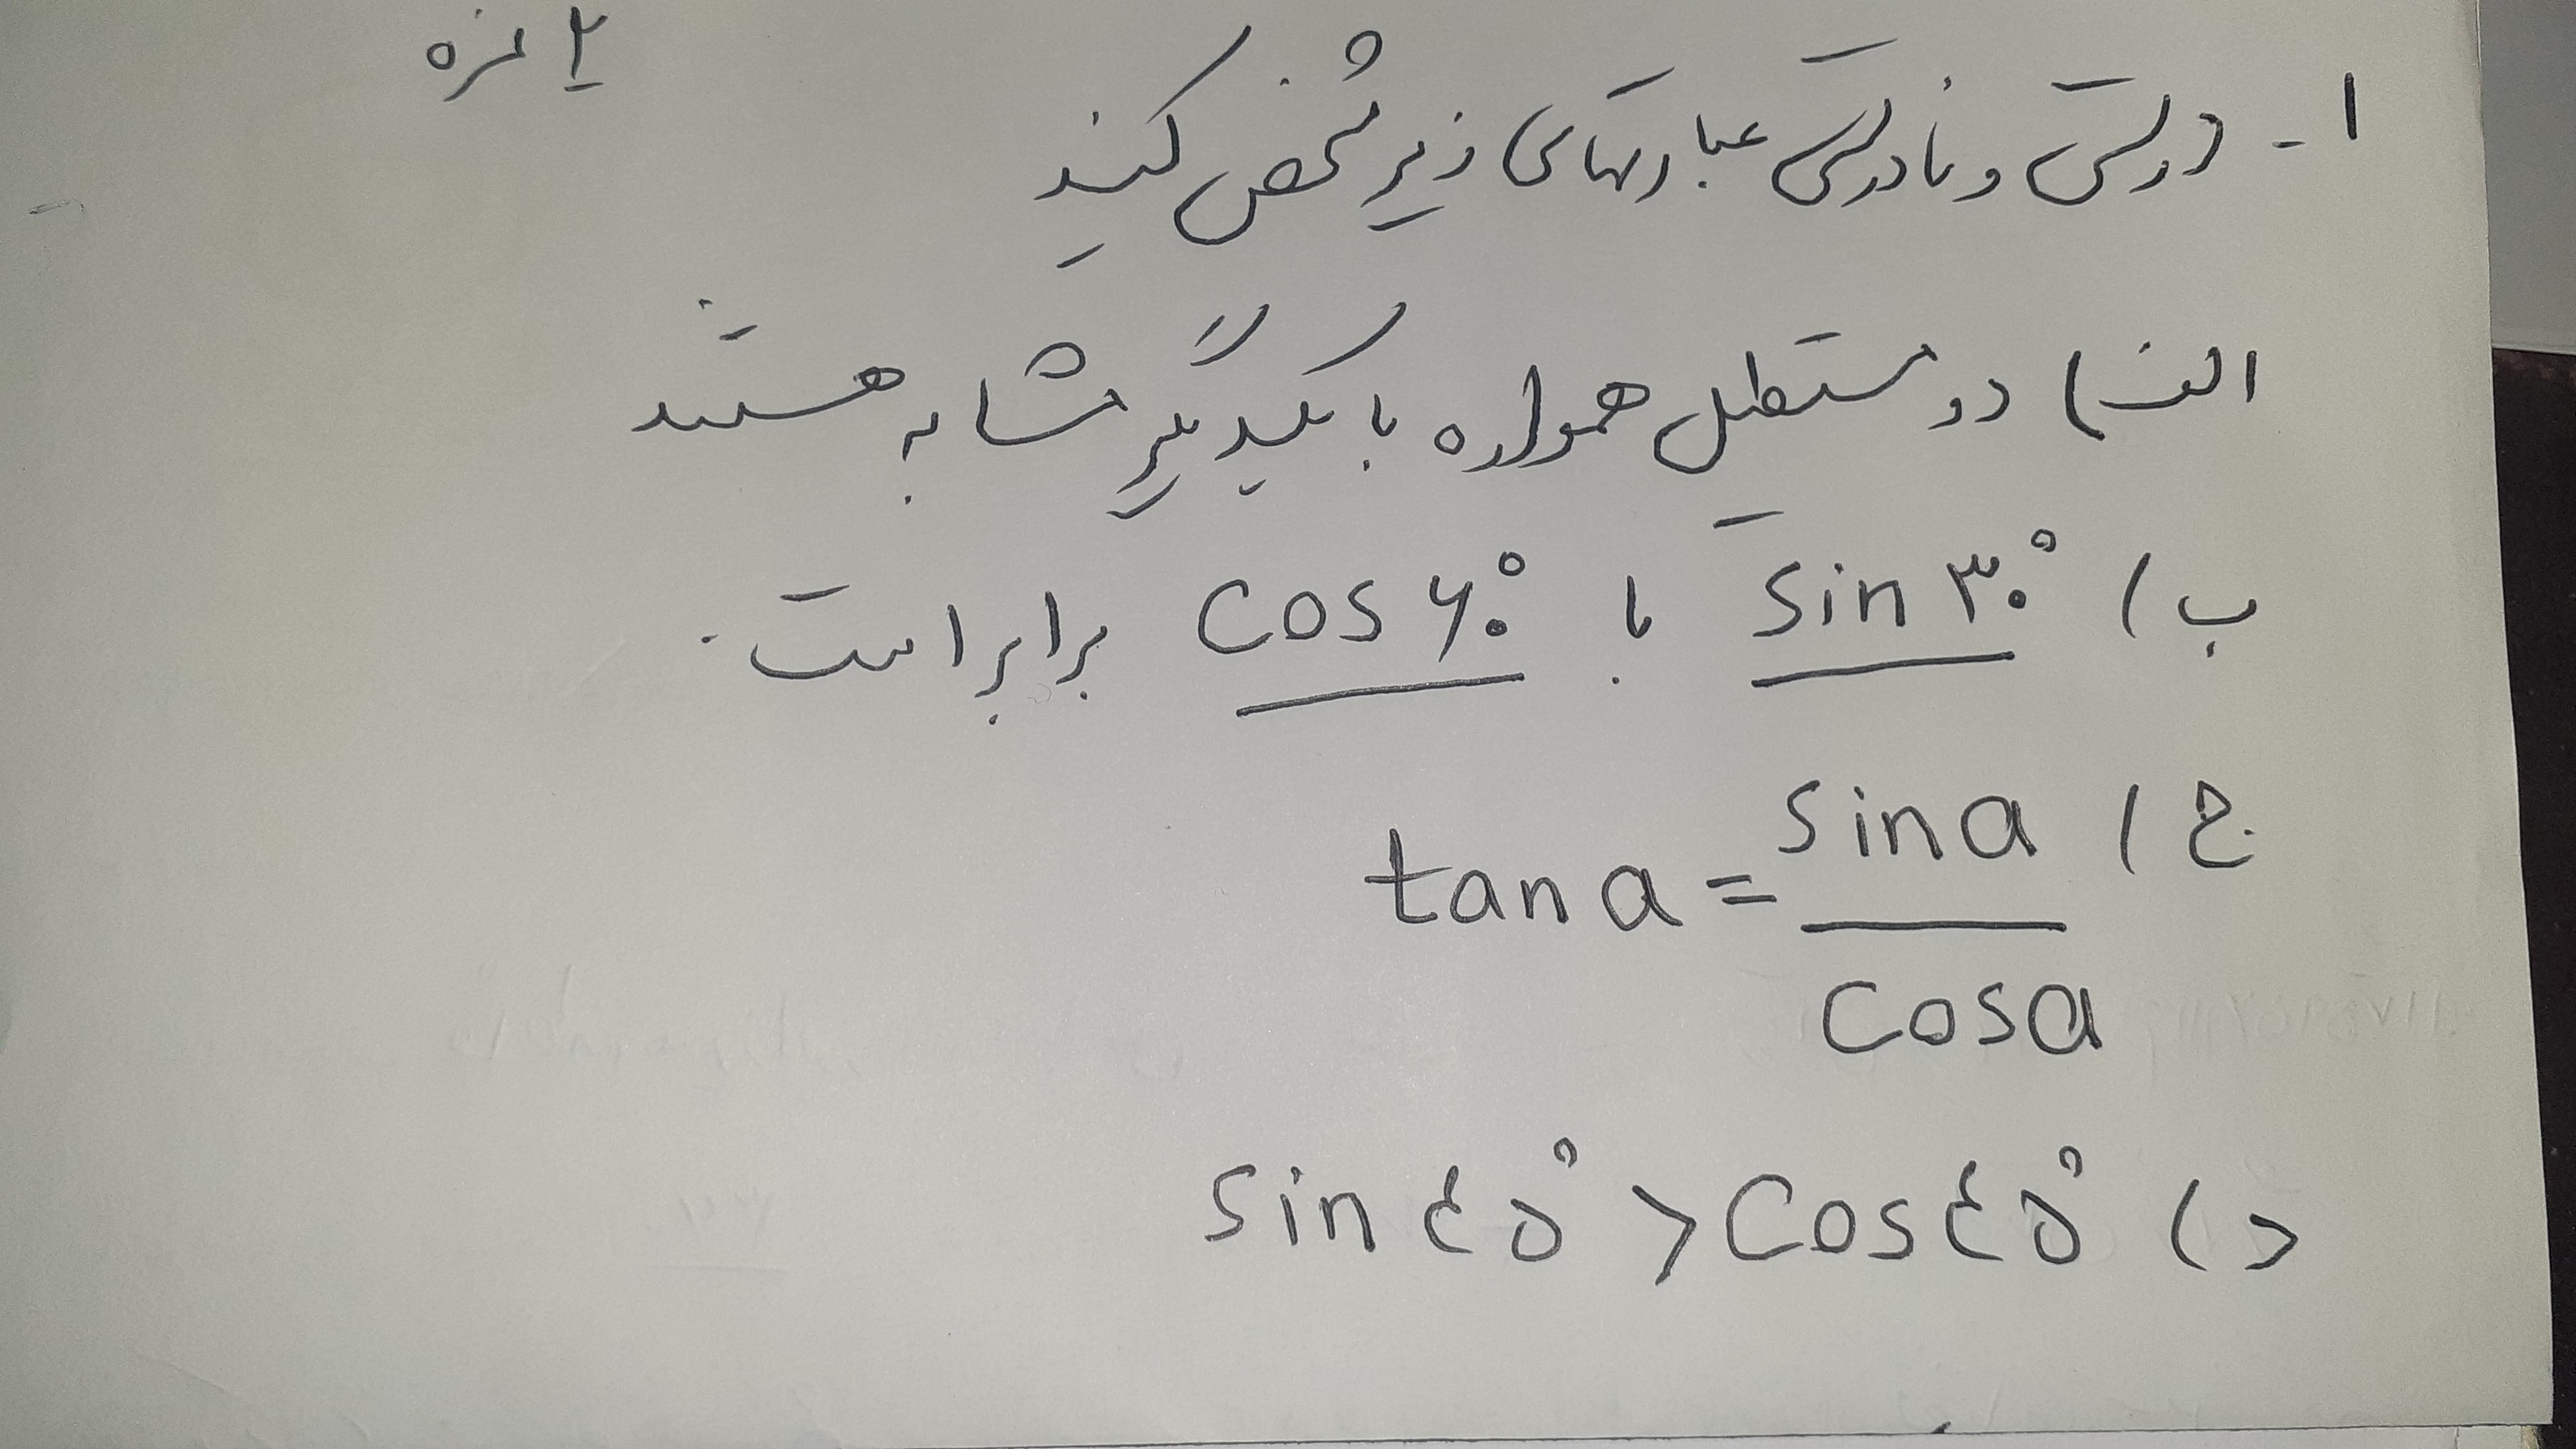 ۲ نمره
۱- درستی و نادرستی عبارتهای زیر مشخص کنید
الف) دو مستطیل همواره با یکدیگر متشابه هستند
ب) sin ۳۰° با cos ۶۰° برابر است.
ج) tan a = sin a / cos a
د) sin ۴۵° > cos ۴۵°